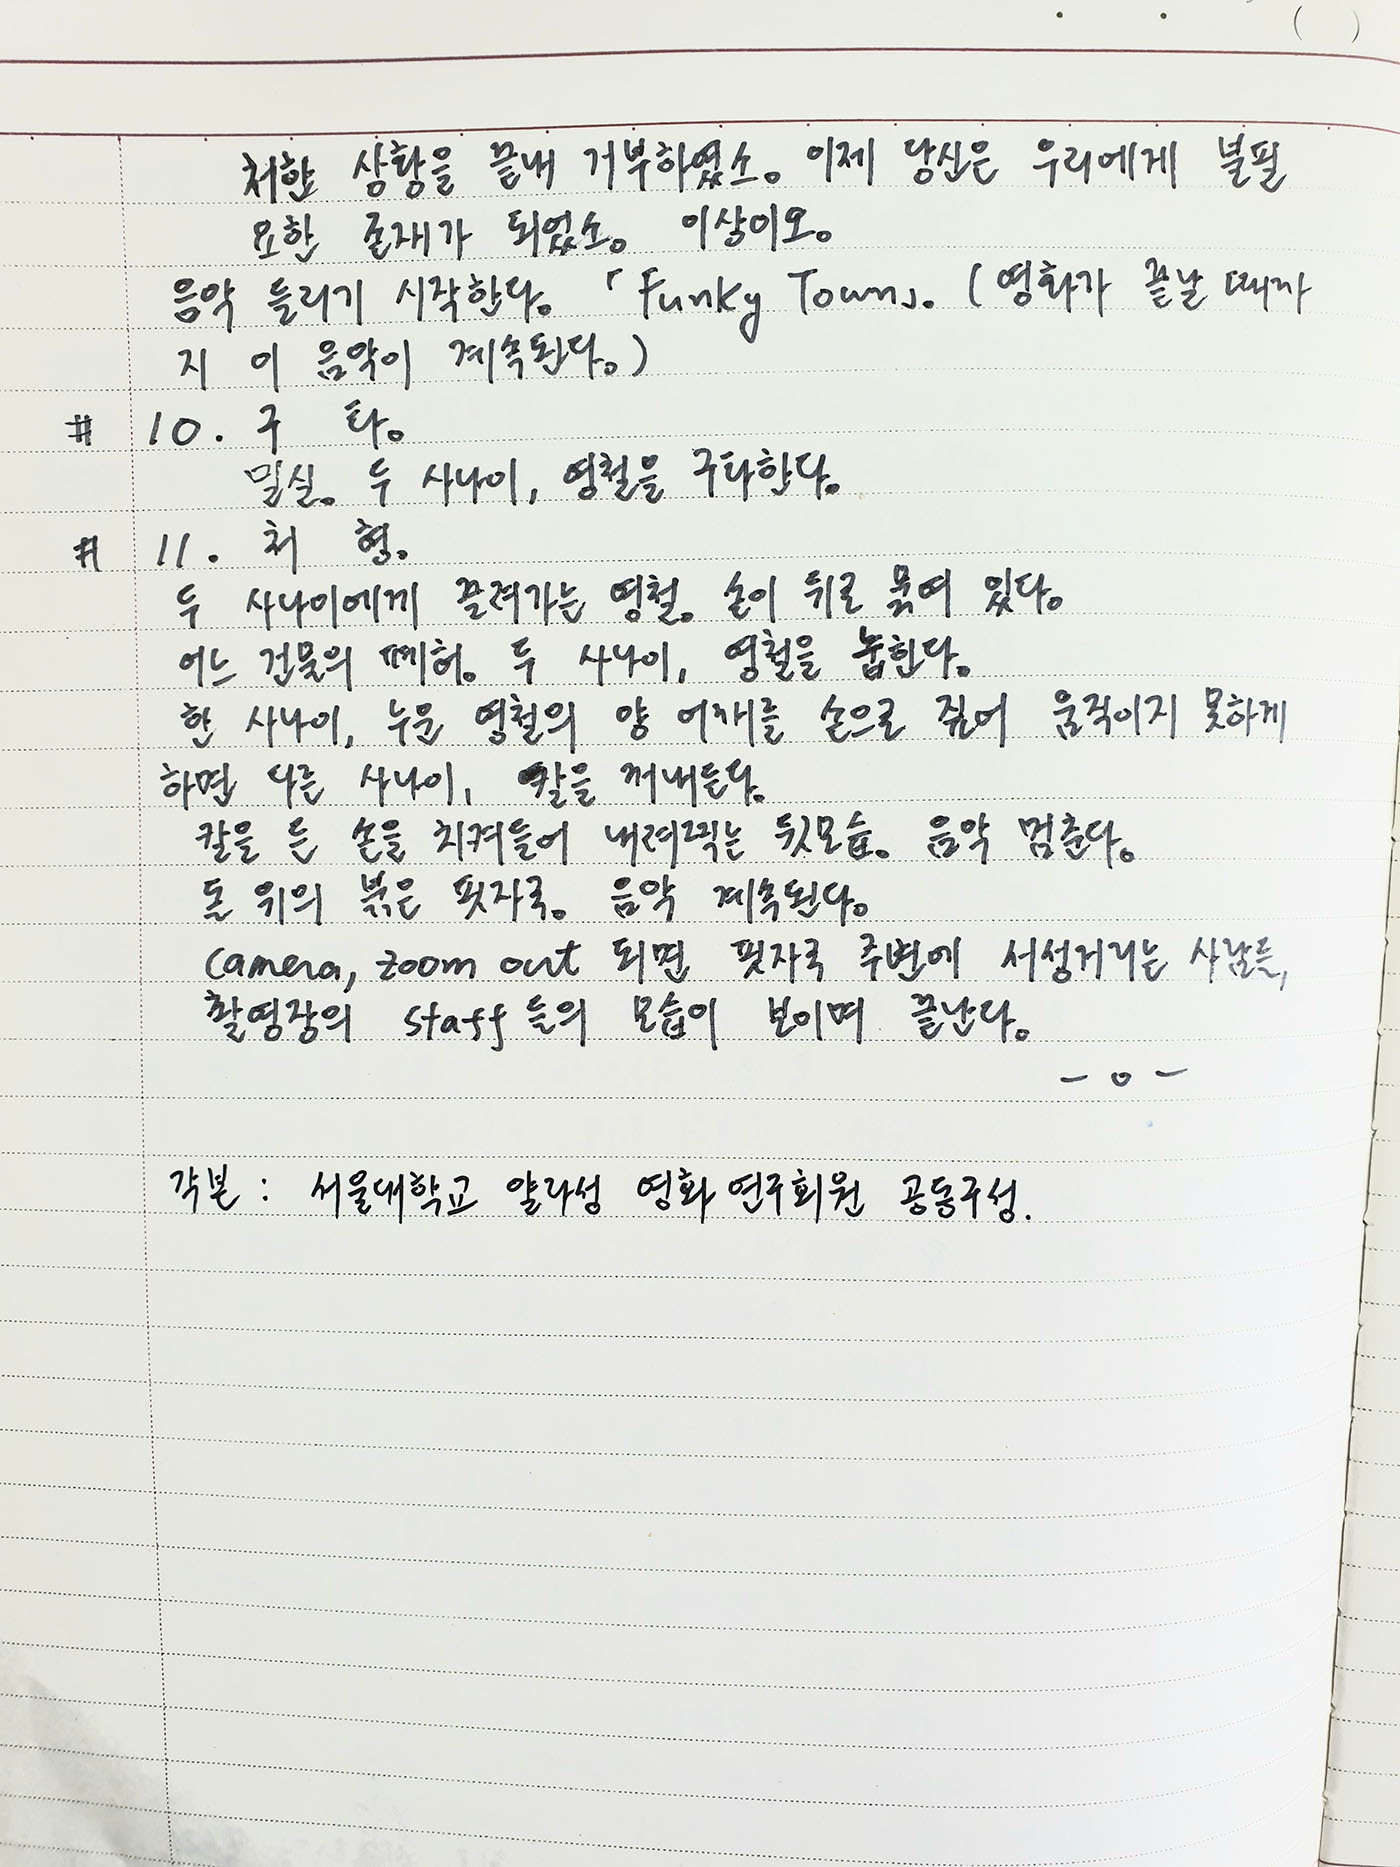 ( )
처한 상황을 끝내 거부하였소。 이제 당신은 우리에게 불필
요한 존재가 되었소。 이상이오。
음악 들리기 시작한다。 「Funky Town」。 (영화가 끝날 때까
지 이 음악이 계속된다。)
# 10. 구 타。
밀실。 두 사나이, 영철을 구타한다。
# 11. 처 형。
두 사나이에게 끌려가는 영철。 손이 뒤로 묶여 있다。
어느 건물의 폐허。 두 사나이, 영철을 눕힌다。
한 사나이, 누운 영철의 양 어깨를 손으로 쥐어 움직이지 못하게
하면 다른 사나이, 칼을 꺼내든다。
칼을 든 손을 치켜들어 내려찍는 뒷모습。 음악 멈춘다。
돌 위의 붉은 핏자국。 음악 계속된다。
camera, zoom out 되면 핏자국 주변에 서성거리는 사람들,
촬영장의 staff들의 모습이 보이며 끝난다。
- o -
각본 : 서울대학교 얄라성 영화연구회원 공동구성.